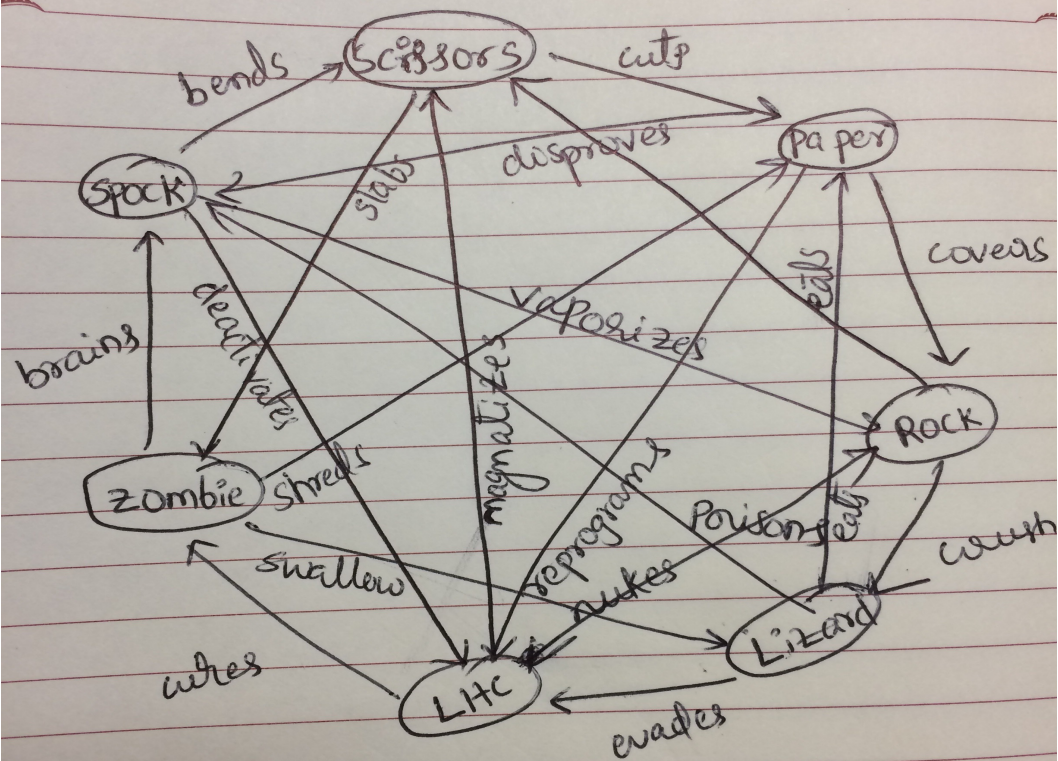 scissors
cuts
bends
paper
disproves
Spock
stabs
covers
eats
deactivates
vaporizes
brains
magnatizes
Rock
zombie
shreds
reprograms
Poisons
eats
crush
swallow
nukes
Lizard
cures
LHC
evades